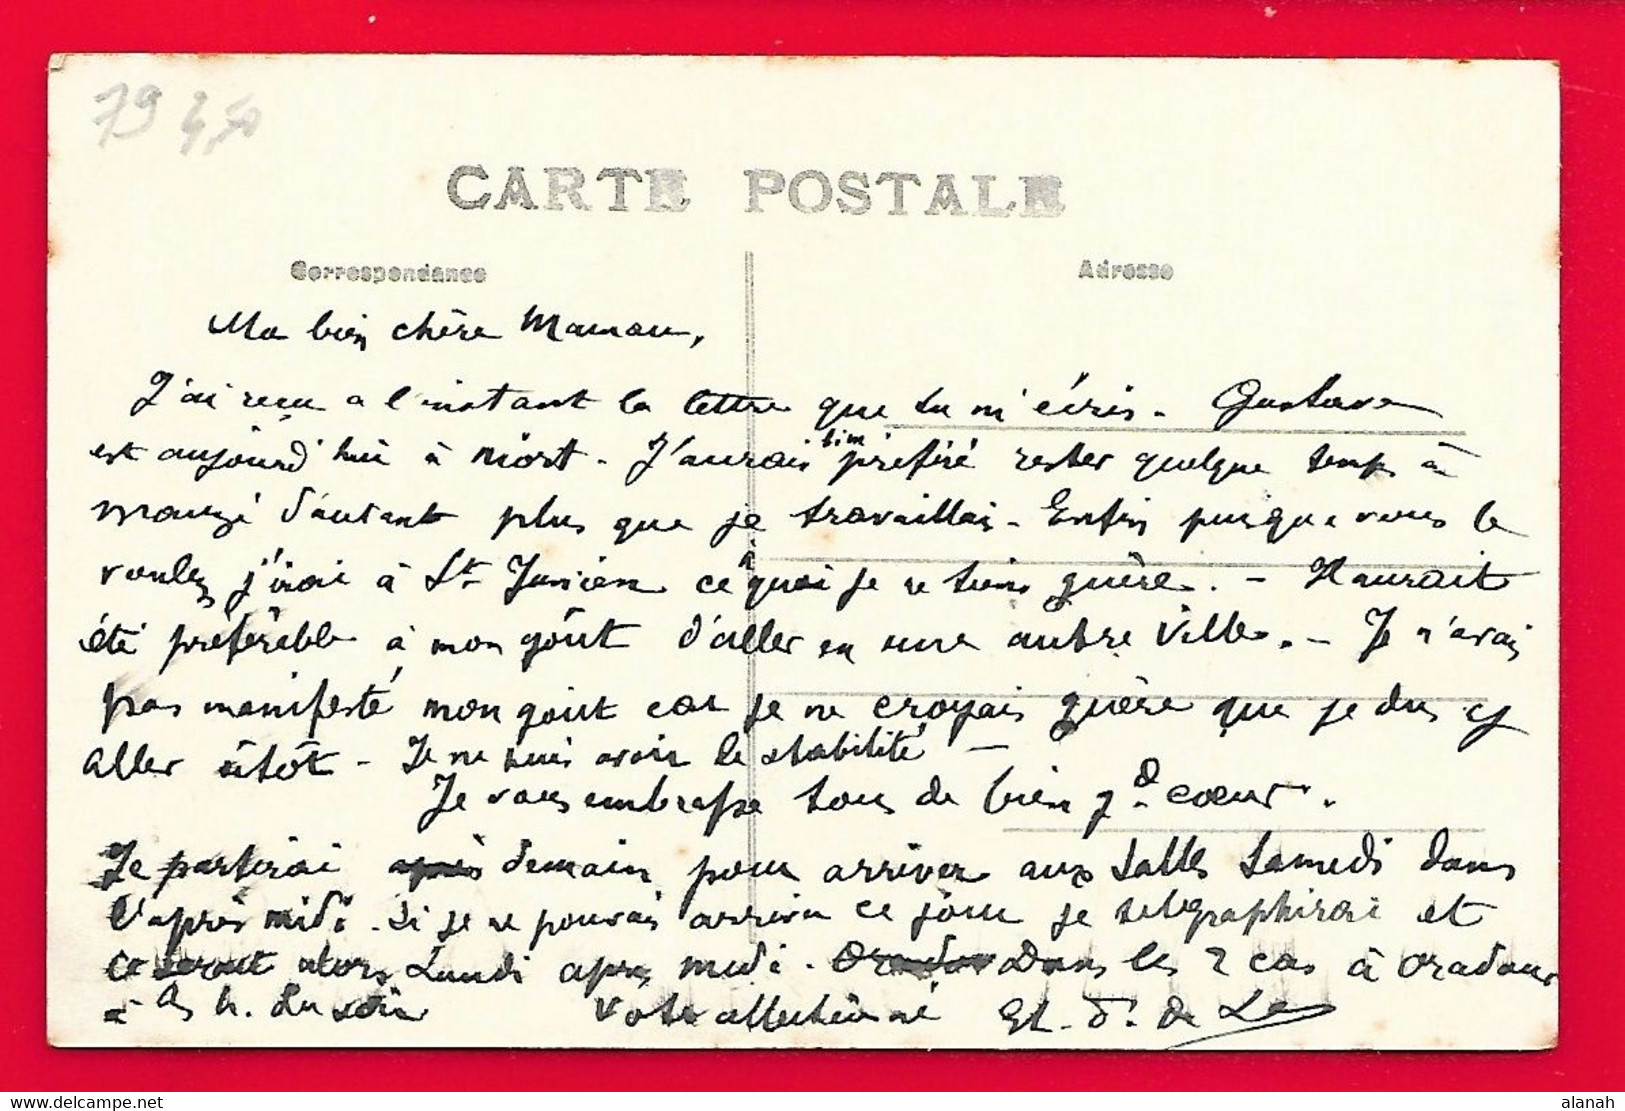 79 4,50
CARTE POSTALE
Correspondance
Adresse
Ma bien chère Maman,
J'ai reçu a l'instant la lettre que tu m'écris. Gustave
est aujourd'hui à Niort. J'aurais bien préféré rester quelque temps à
Mauzé d'autant plus que je travaillais. Enfin puisque vous le
voulez j'irai à St Junien ce à quoi je ne tiens guère. - Il aurait
été préférable à mon goût d'aller en une autre Ville. - Je n'avais
pas manifesté mon goût car je ne croyais guère que je dus y
aller sitôt - Je ne puis avoir la stabilité -
Je vous embrasse tous de bien gd cœur.
Je partirai demain pour arriver aux Salles Samedi dans
l'après midi. Si je ne pouvais arriver ce jour je telegraphirai et
ce serait alors Lundi apres midi. Dans les 2 cas à Oradour
à h. du soir Votre affectionné
alanah